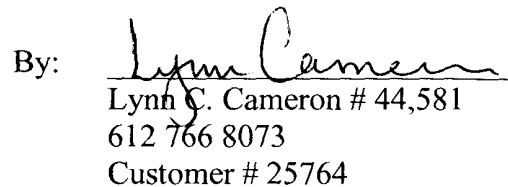 By: Lynn Cameron
Lynn C. Cameron # 44,581
612 766 8073
Customer # 25764